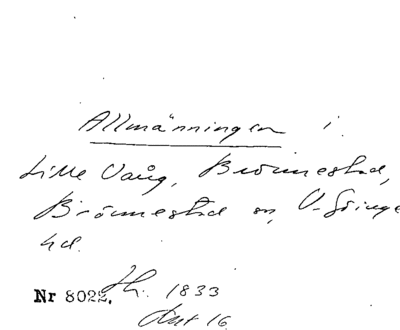 Allmänningen i
Lille Vång, Brönnestad,
Brönnestad sn, V-Göinge
hd.
Nr 8022. 1833
Akt 16.